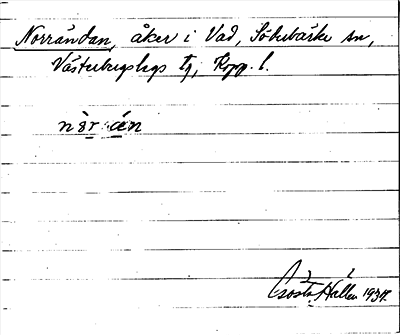 Norråndan, åker i Vad, Söderbärke sn,
Västerbergslags tg, Kopp. l.
Gösta Hallén 1934.